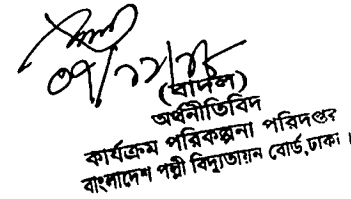 ০৭/১১/১৮
(বাদল)
অর্থনীতিবিদ
কার্যক্রম পরিকল্পনা পরিদপ্তর
বাংলাদেশ পল্লী বিদ্যুতায়ন বোর্ড,ঢাকা ।